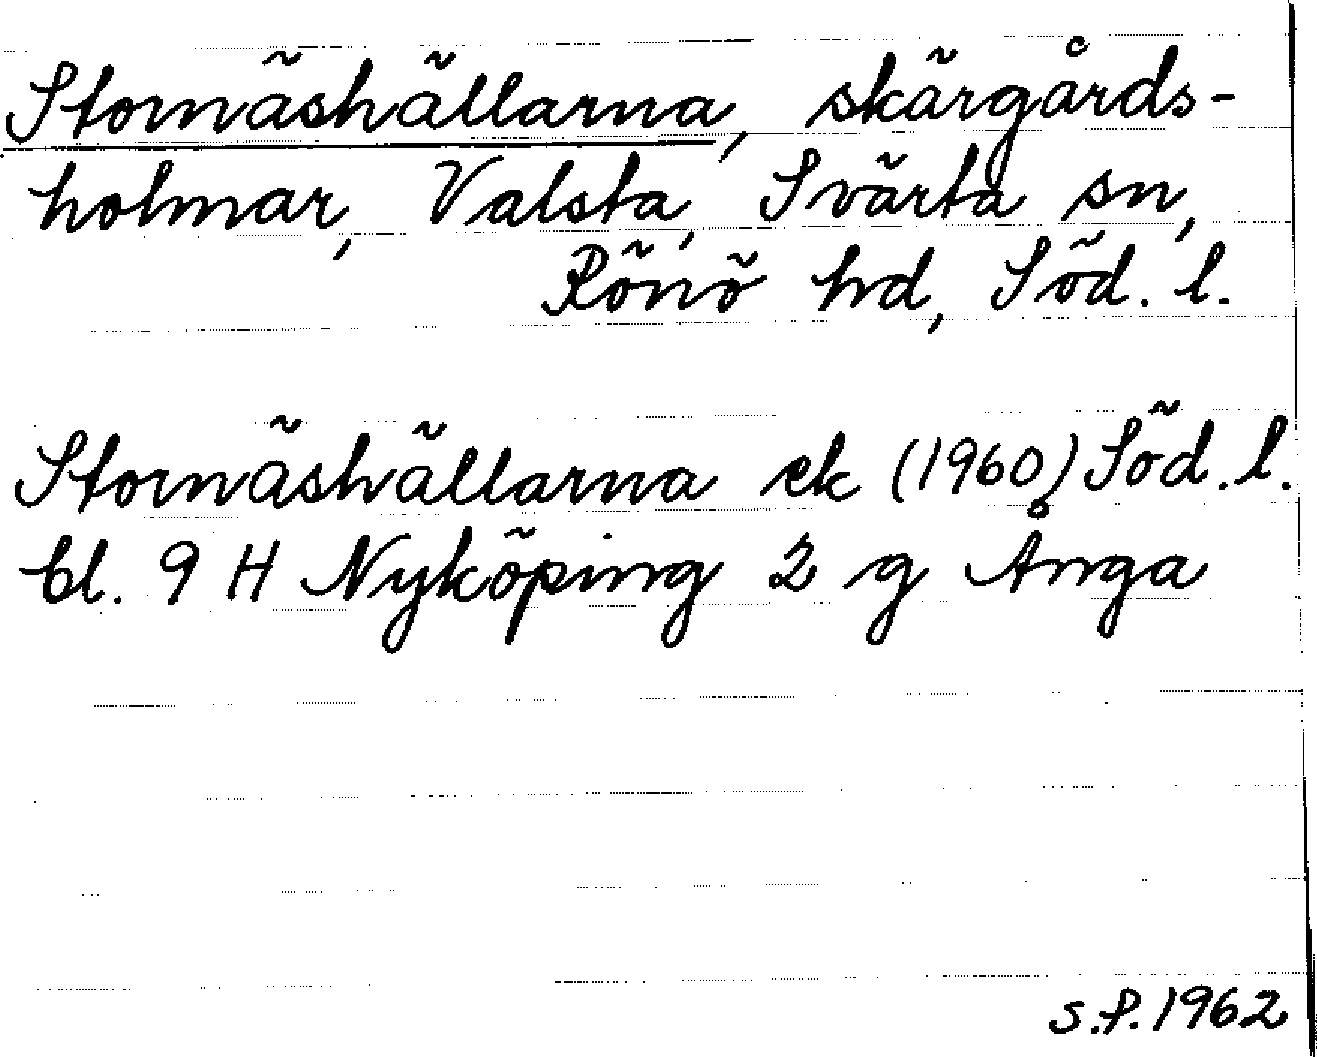 Stornäshällarna, skärgårds-
holmar, Valsta, Svärta sn,
Rönö hd, Söd. l.
Stornäshällarna ek (1960) Söd. l.
bl. 9 H Nyköping 2 g Ånga
S.P. 1962